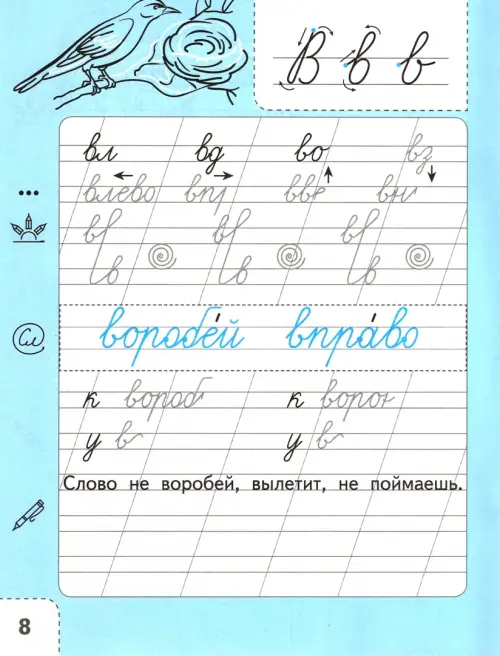 В в в
вл вд во вз
влево впр вве вни
вв вв вв
Сл воробе́й впра́во
к вороб к ворон
у в у в
Слово не воробей, вылетит, не поймаешь.
8